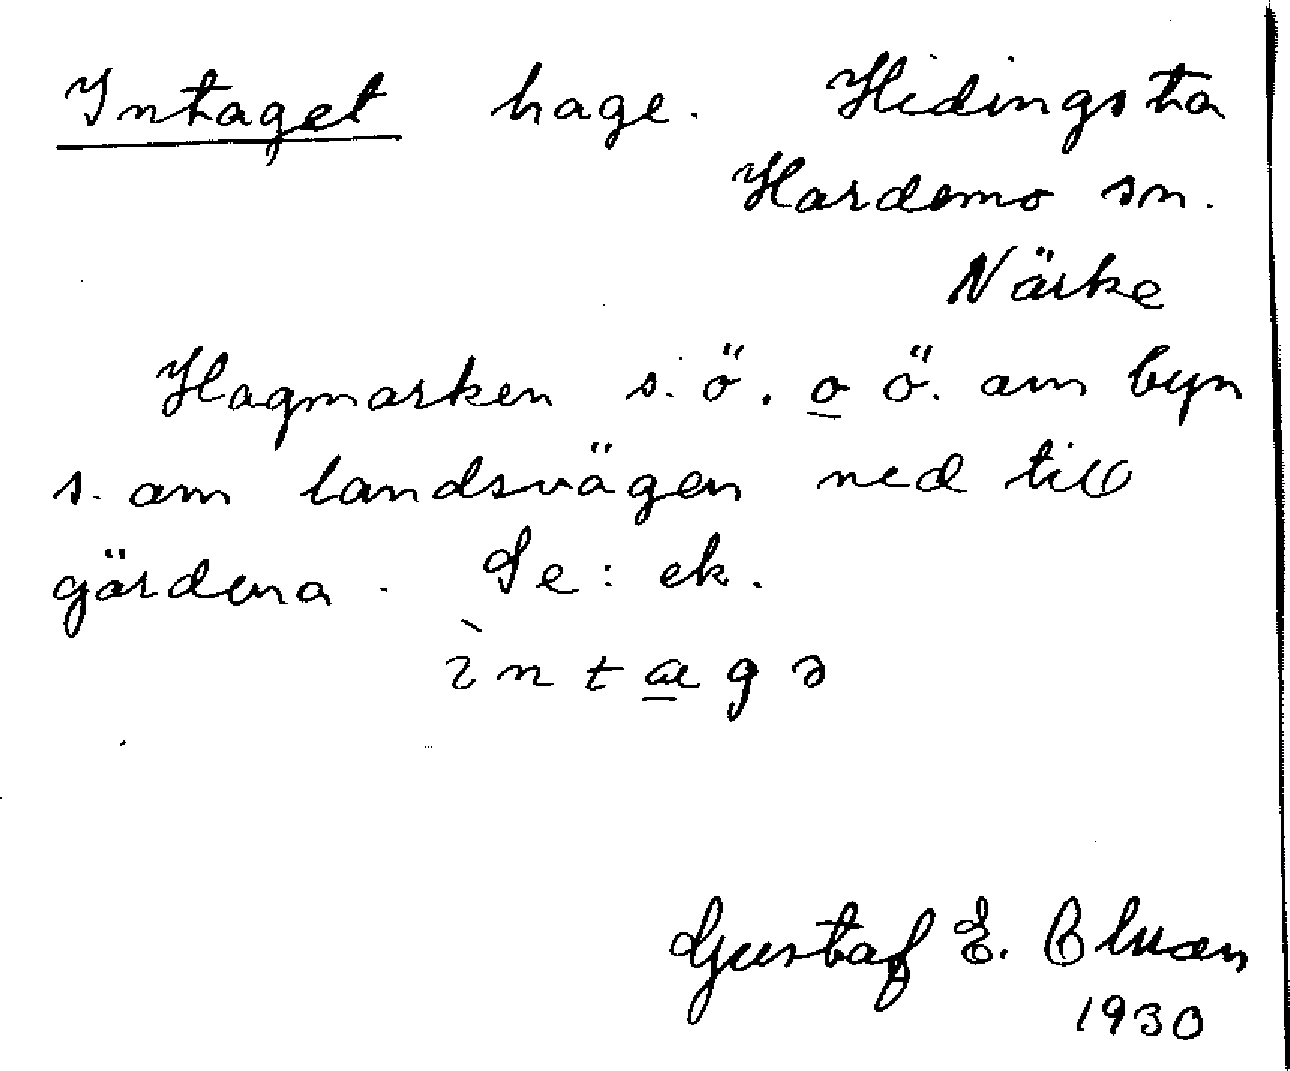 Intaget hage. Hidingsta
Hardemo sn.
Närke
Hagmarken s.ö. o ö. om byn
s. om landsvägen ned till
gärdena. Se: ek.
ìntagə
Gustaf E.
1930